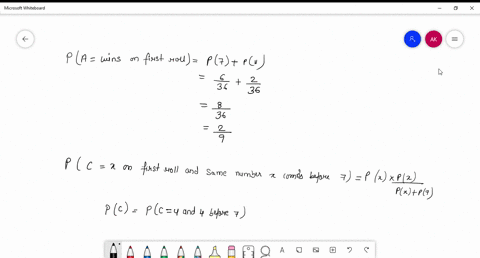 Microsoft Whiteboard
AK
P(A = wins on first roll) = P(7) + P(11)
= 6/36 + 2/36
= 8/36
= 2/9
P( C = x on first roll and same number x comes before 7) = P(x) x P(x)/P(x)+P(7)
P(C) = P(C=4 and 4 before 7)
A